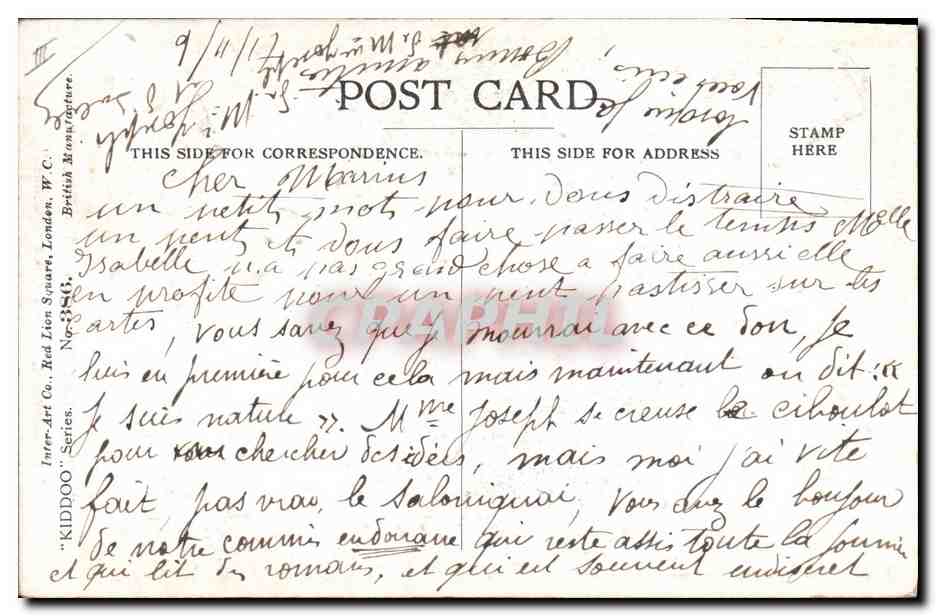 POST CARD
THIS SIDE FOR CORRESPONDENCE.
THIS SIDE FOR ADDRESS
STAMP
HERE
Cher Marius
un petit mot pour Vous distraire
un peut et Vous faire passer le temps Melle
Isabelle n'a pas grand chose a faire aussi elle
en profite pour un peut pastisser sur les
cartes, vous savez que je mourrai avec ce don, je
suis en première pour cela mais maintenant on dit: «
Je suis nature ». Mme Joseph se creuse le ciboulot
pour chercher des idées, mais moi j'ai vite
fait, pas vrai, le Saloniquai, vous avez le bonjour
de notre commis en douane qui reste assis toute la journée
et qui lit des romans, et qui est souvent
Inter-Art Co., Red Lion Square, London, W.C.
"KIDDOO" Series. No. 386. British Manufacture.
III
CPAPHIL